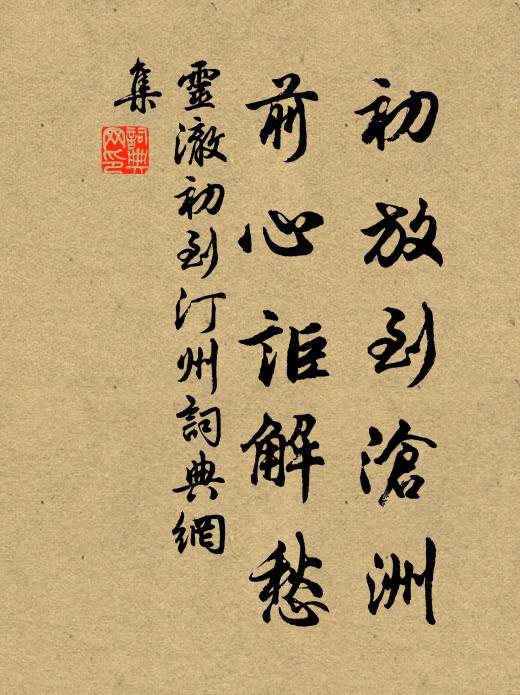 初放到滄洲
前心詎解愁
靈澈初到汀州詞典網
集
詞典網印